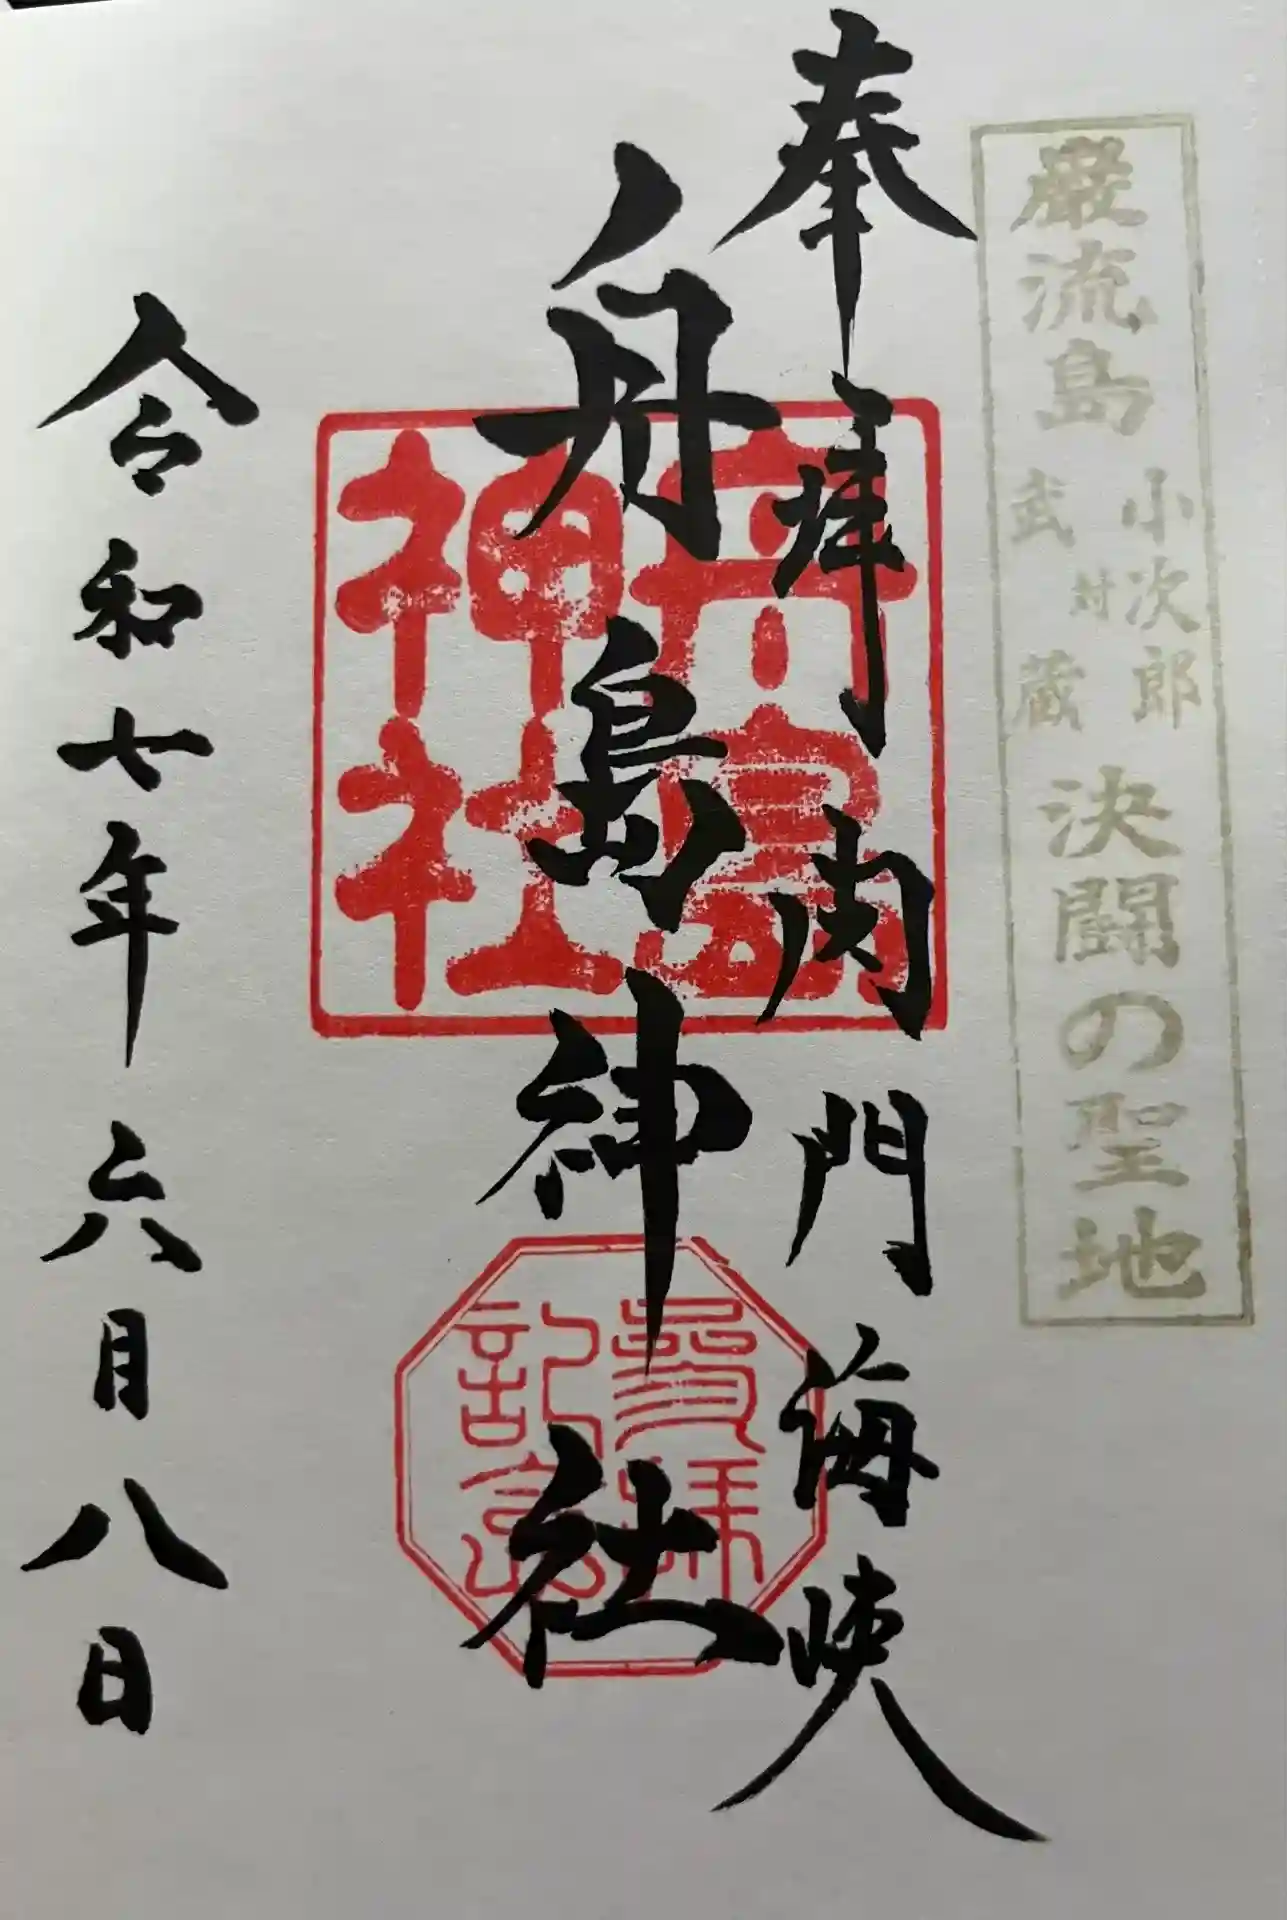 巌流島 小次郎 対 武蔵 決闘の聖地
奉拝 関門海峡
舟島神社
舟島
神社
參拝
記念
令和七年六月八日